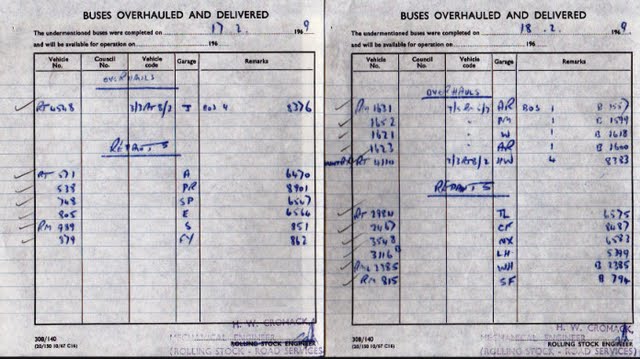 BUSES OVERHAULED AND DELIVERED
The undermentioned buses were completed on 17 . 2 . 196 9
and will be available for operation on 196
Vehicle No. Council No. Vehicle code Garage Remarks
OVERHAULS
RT 4548 3/3RT8/2 J ROS 4 8376
REPAINTS
RT 571 A 6470
538 PR 8901
748 SP 6567
805 E 6564
RM 939 S 851
379 FY 862
308/140
(20/150 10/67 C16)
H. W. CROMACK
MECHANICAL ENGINEER
ROLLING STOCK ENGINEER
(ROLLING STOCK - ROAD SERVICES)
BUSES OVERHAULED AND DELIVERED
The undermentioned buses were completed on 18 . 2 . 196 9.
and will be available for operation on 196
Vehicle No. Council No. Vehicle code Garage Remarks
OVERHAULS
RM 1631 AR ROS 1 B 1557
1652 1 B 1599
1621 W 1 B 1618
1623 AR 1 B 1600
4110 3/3RT8/2 HW 4 8383
REPAINTS
RT 2984 TL 6575
2467 CF 8487
3548 NX 6583
3116 LH 5399
2385 WH B 2385
RM 815 SF B 794
308/140
(20/150 10/67 C16)
H. W. CROMACK
MECHANICAL ENGINEER
ROLLING STOCK ENGINEER
(ROLLING STOCK - ROAD SERVICES)